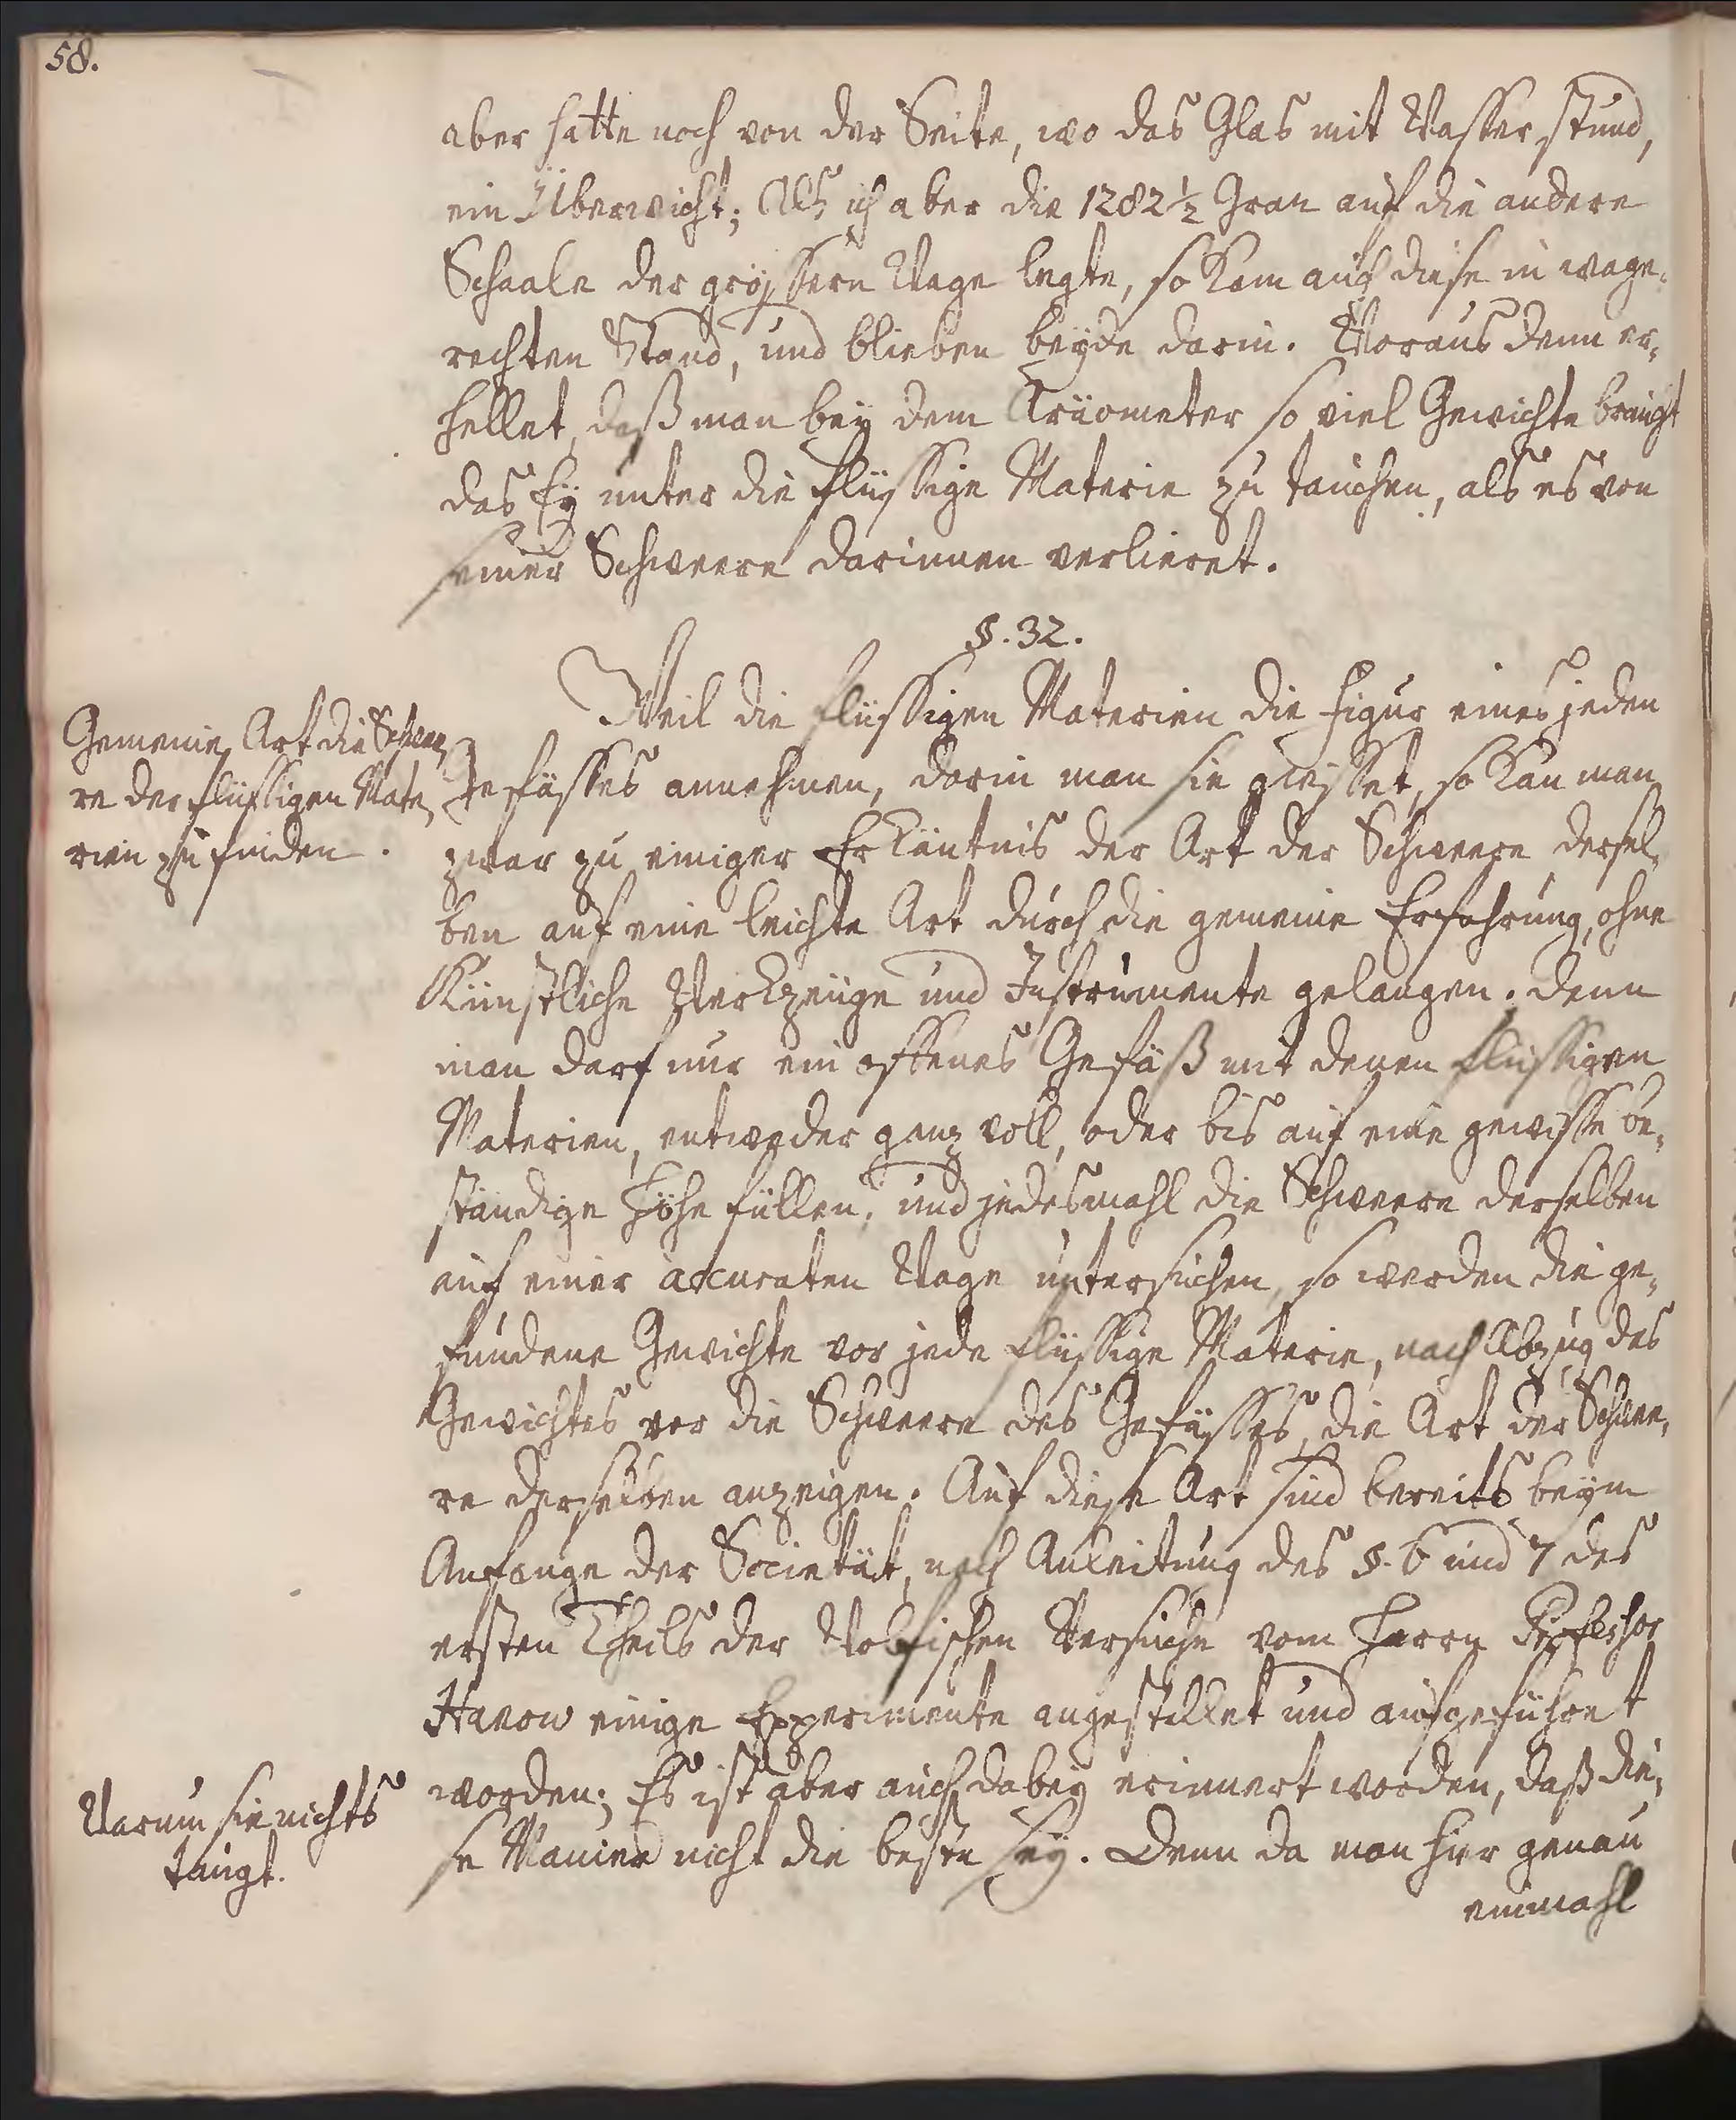 58.
aber hatte noch von der Seite, wo das Glas mit Wasser stund,
ein Überwicht; Als ich aber die 1282 1/2 Gran auf die andere
Schaale der grössern Wage legte, so kam auch diese in wage-
rechten Stand, und blieben beyde darin. Woraus denn er-
hellet, daß man bey dem Aräometer so viel Gewichte braucht
das Ey unter die flüssige Materie zu tauchen, als es von
seiner Schweere darinnen verlieret.
§. 32.
Gemeine Art die Schwee-
re der flüssigen Mate-
rien zu finden.
Weil die flüssigen Materien die Figur eines jeden
Gefässes annehmen, darin man sie giesset, so kan man
zwar zu einiger Erkäntnis der Art der Schweere dersel-
ben auf eine leichte Art durch die gemeine Erfahrung, ohne
Künstliche Werkzeuge und Instrumente gelangen. Denn
man darf nur ein offenes Gefäß mit denen flüssigen
Materien, entweder ganz voll, oder bis auf eine gewisse be-
ständige Höhe füllen, und jedesmahl die Schweere derselben
auf einer accuraten Wage untersuchen, so werden die ge-
fundene Gewichte vor jede flüssige Materie, nach Abzug des
Gewichtes vor die Schweere des Gefässes, die Art der Schwee-
re derselben anzeigen. Auf diese Art sind bereits beym
Anfange der Societät, nach Anleitung des §. 6 und 7 des
ersten Theils der Wolfischen Versuche vom Herrn Professor
Hanow einige Experimente angestellet und aufgeführet
worden; Es ist aber auch dabey erinnert worden, daß die-
se Manier nicht die beste sey. Denn da man hier genau
Warum sie nichts
taugt.
einmahl